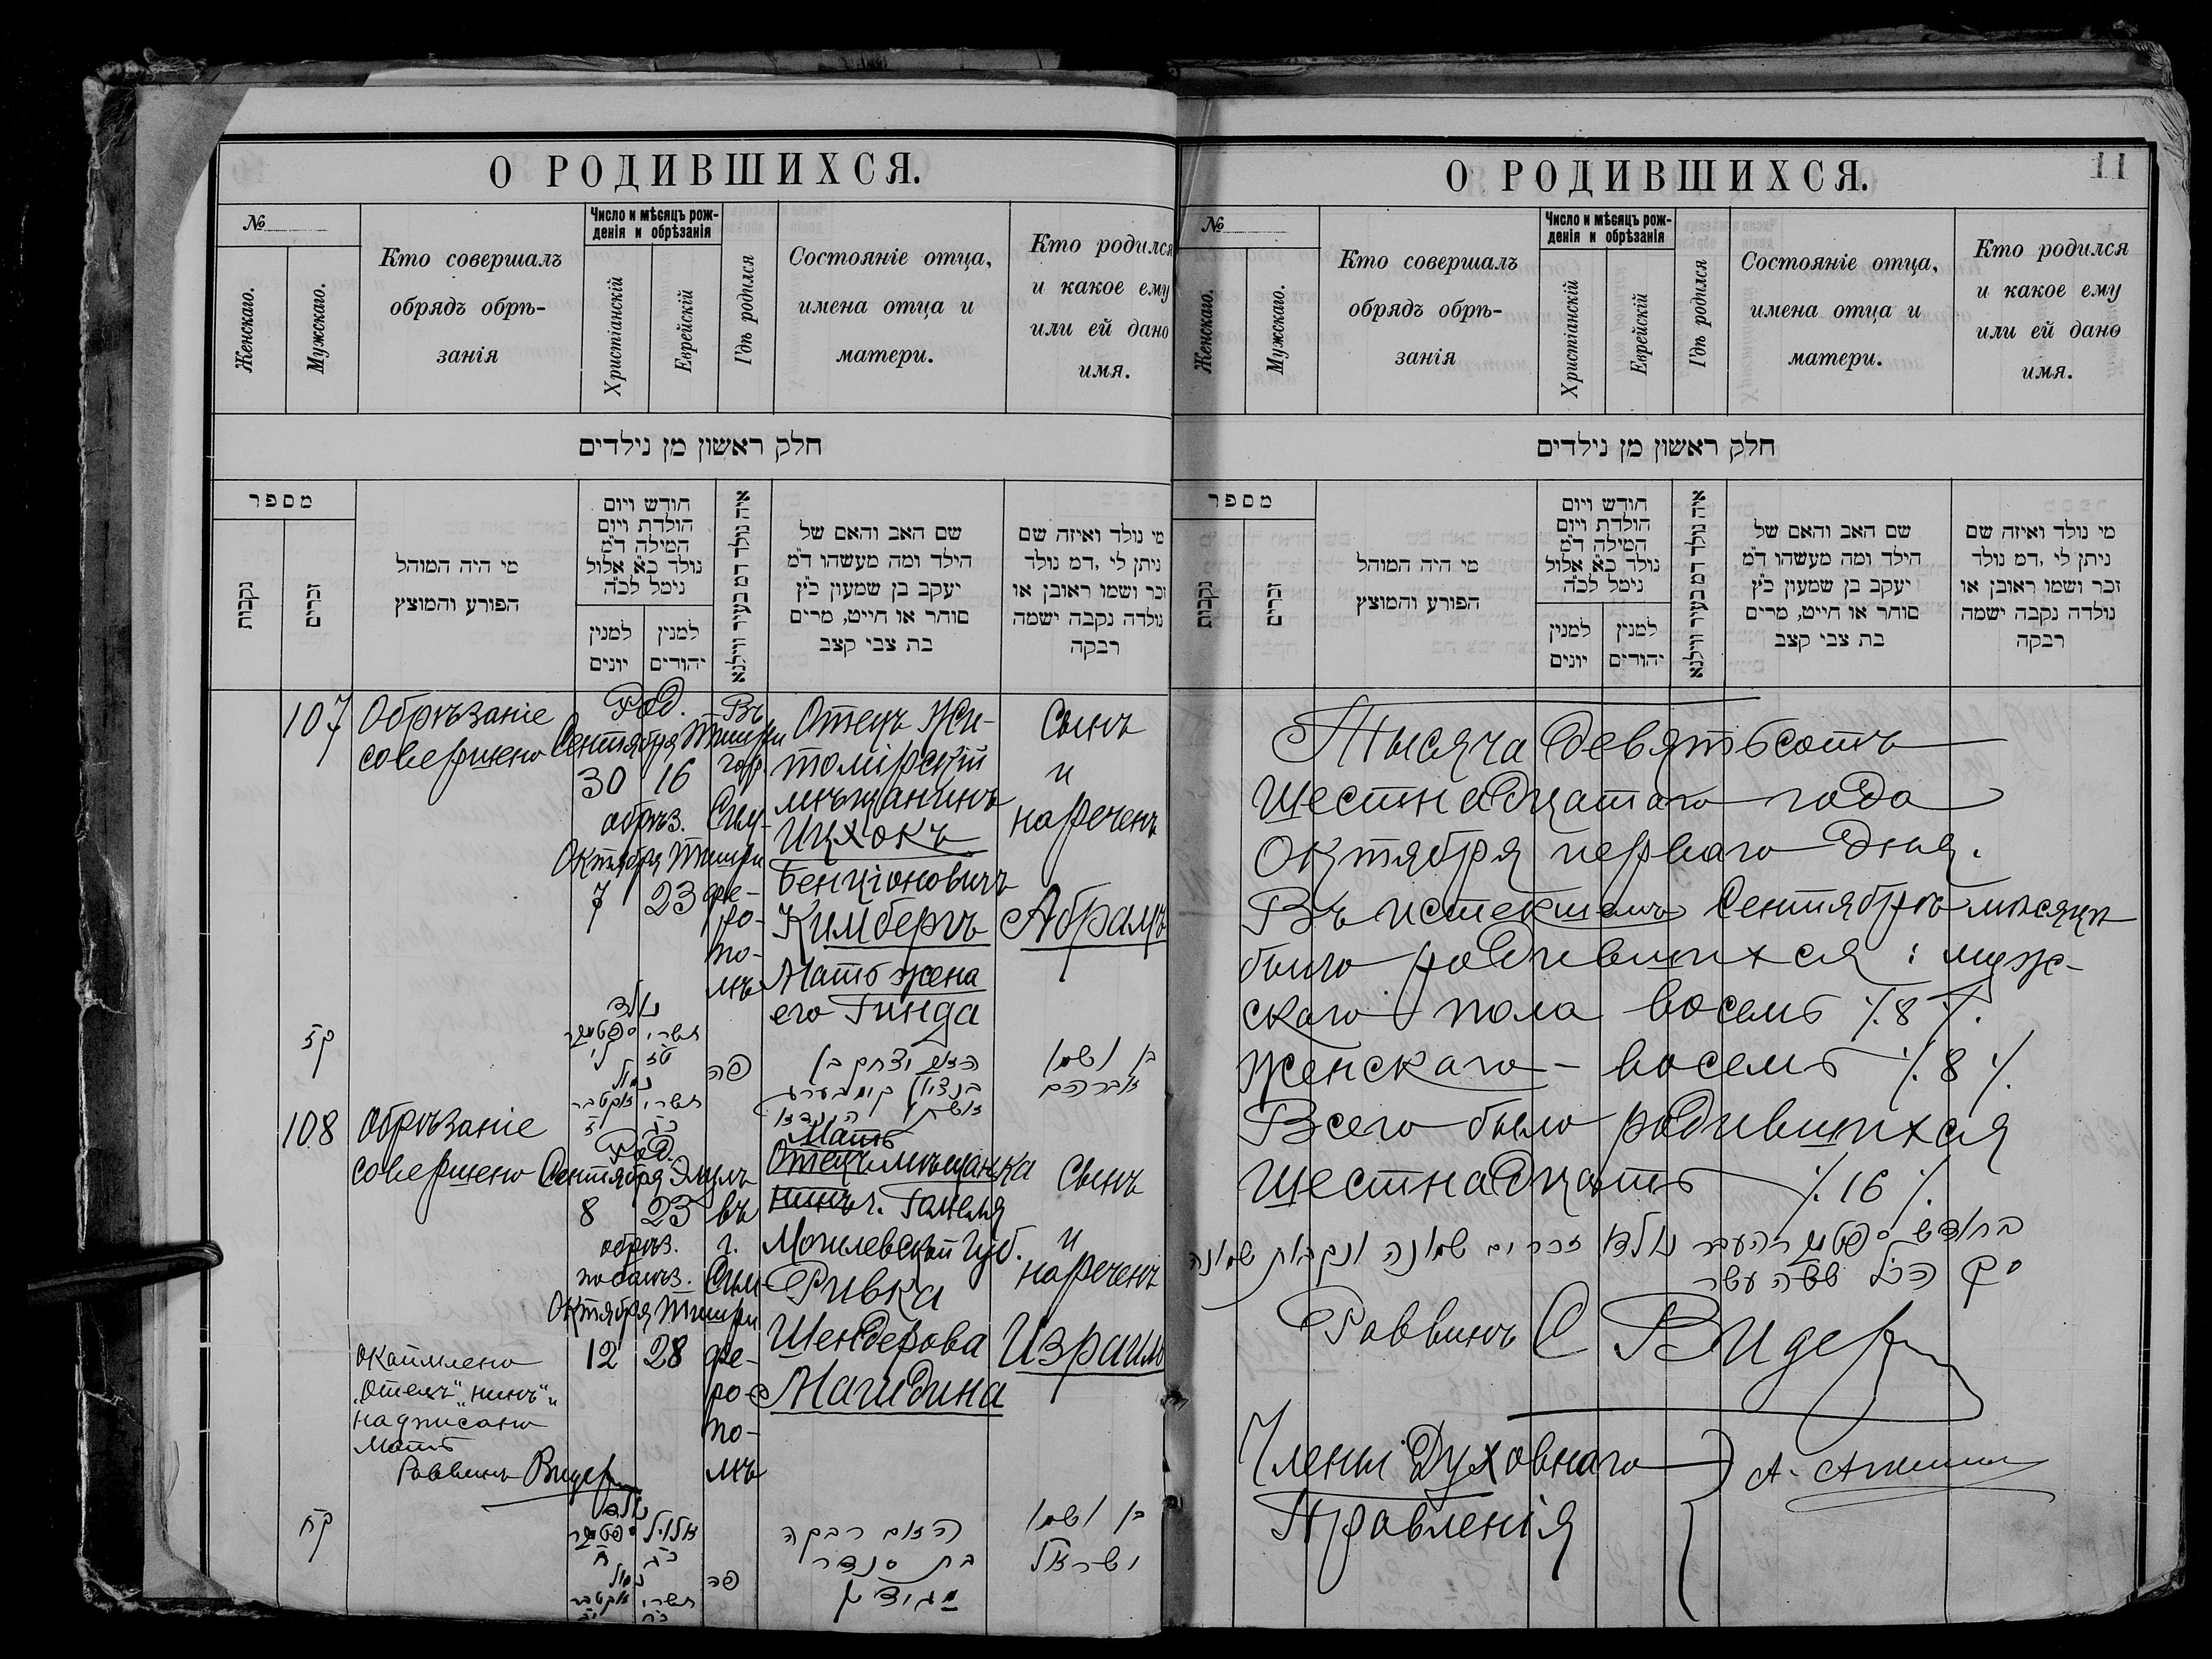 О РОДИВШИХСЯ.
№
Женскаго.
Мужскаго.
Кто совершалъ
обрядъ обрѣ-
занія
Число и мѣсяцъ рож-
денія и обрѣзанія
Христіанскій
Еврейскій
Гдѣ родился
Состояніе отца,
имена отца и
матери.
Кто родился
и какое ему
или ей дано
имя.
חלק ראשון מן נילדים
מספר
נקבות
זכרים
מי היה המוהל
הפורע והמוצץ
חודש ויום
הולדת ויום
המילה ד״מ
נולד כ״א אלול
נימל לכ״ה
למנין
יונים
למנין
יהודים
איה נולד דמ בעיר ווילנא
שם האב והאם של
הילד ומה מעשהו ד״מ
יעקב בן שמעון כ״ץ
סוחר או חייט, מרים
בת צבי קצב
מי נולד ואיזה שם
ניתן לי ,דמ נולד
זכר ושמו ראובן או
נולדה נקבה ישמה
רבקה
107
Обрѣзаніе
совершено
Род.
Сентября Тишри
30 16
обрѣз.
Октября Тишри
7 23
Въ
гор.
Сим-
фе-
ро-
по-
лѣ
Отецъ Жи-
томірскій
мѣщанинъ
Ицхокъ
Бенціоновичъ
Кимбергъ
Мать жена
его Гинда
Сынъ
и
нареченъ
Абрамъ
קז
נולד
תשרי ספטמבר
טז ל
נמול
תשרי אקטבר
כג ז
פה
האב יצחק בן
בנציון קימבערג
אשתו הינדא
בן ושמו
אברהם
108
Обрѣзаніе
совершено
Род.
Сентября Элулъ
8 23
обрѣз.
по болѣз.
Октября Тишри
12 28
въ
г.
Сим
фе-
ро-
по-
лѣ
Мать
Отецъ мѣщанка
нинъ г. Гомеля
Могилевской губ.
Ривка
Шендерова
Магидина
Сынъ
и
нареченъ
Израиль
окаймлено
„Отецъ" „нинъ" и
надписано
Мать
Раввинъ Видер
קח
נולד
אלול ספטמבר
כג ח
נמול
תשרי אקטבר
כח יב
פה
האם רבקה
בת סנדר
מגידין
בן ושמו
ישראל
О РОДИВШИХСЯ.
11
№
Женскаго.
Мужскаго.
Кто совершалъ
обрядъ обрѣ-
занія
Число и мѣсяцъ рож-
денія и обрѣзанія
Христіанскій
Еврейскій
Гдѣ родился
Состояніе отца,
имена отца и
матери.
Кто родился
и какое ему
или ей дано
имя.
חלק ראשון מן נילדים
מספר
נקבות
זכרים
מי היה המוהל
הפורע והמוצץ
חודש ויום
הולדת ויום
המילה ד״מ
נולד כ״א אלול
נימל לכ״ה
למנין
יונים
למנין
יהודים
איה נולד דמ בעיר ווילנא
שם האב והאם של
הילד ומה מעשהו ד״מ
יעקב בן שמעון כ״ץ
סוחר או חייט, מרים
בת צבי קצב
מי נולד ואיזה שם
ניתן לי ,דמ נולד
זכר ושמו ראובן או
נולדה נקבה ישמה
רבקה
Тысяча девятьсотъ
шестнадцатаго года
Октября перваго дня.
Въ истекшемъ Сентябрѣ мѣсяцѣ
было родившихся: муж-
скаго пола восемь /.8/.
Женскаго – восемь /.8/.
Всего было родившихся
шестнадцать /.16/.
בחודש ספטמבר העבר נולדו זכרים שמונה ונקבות שמונה
סך הכל ששה עשר
Раввинъ С Видер
Члены Духовнаго
Правленія